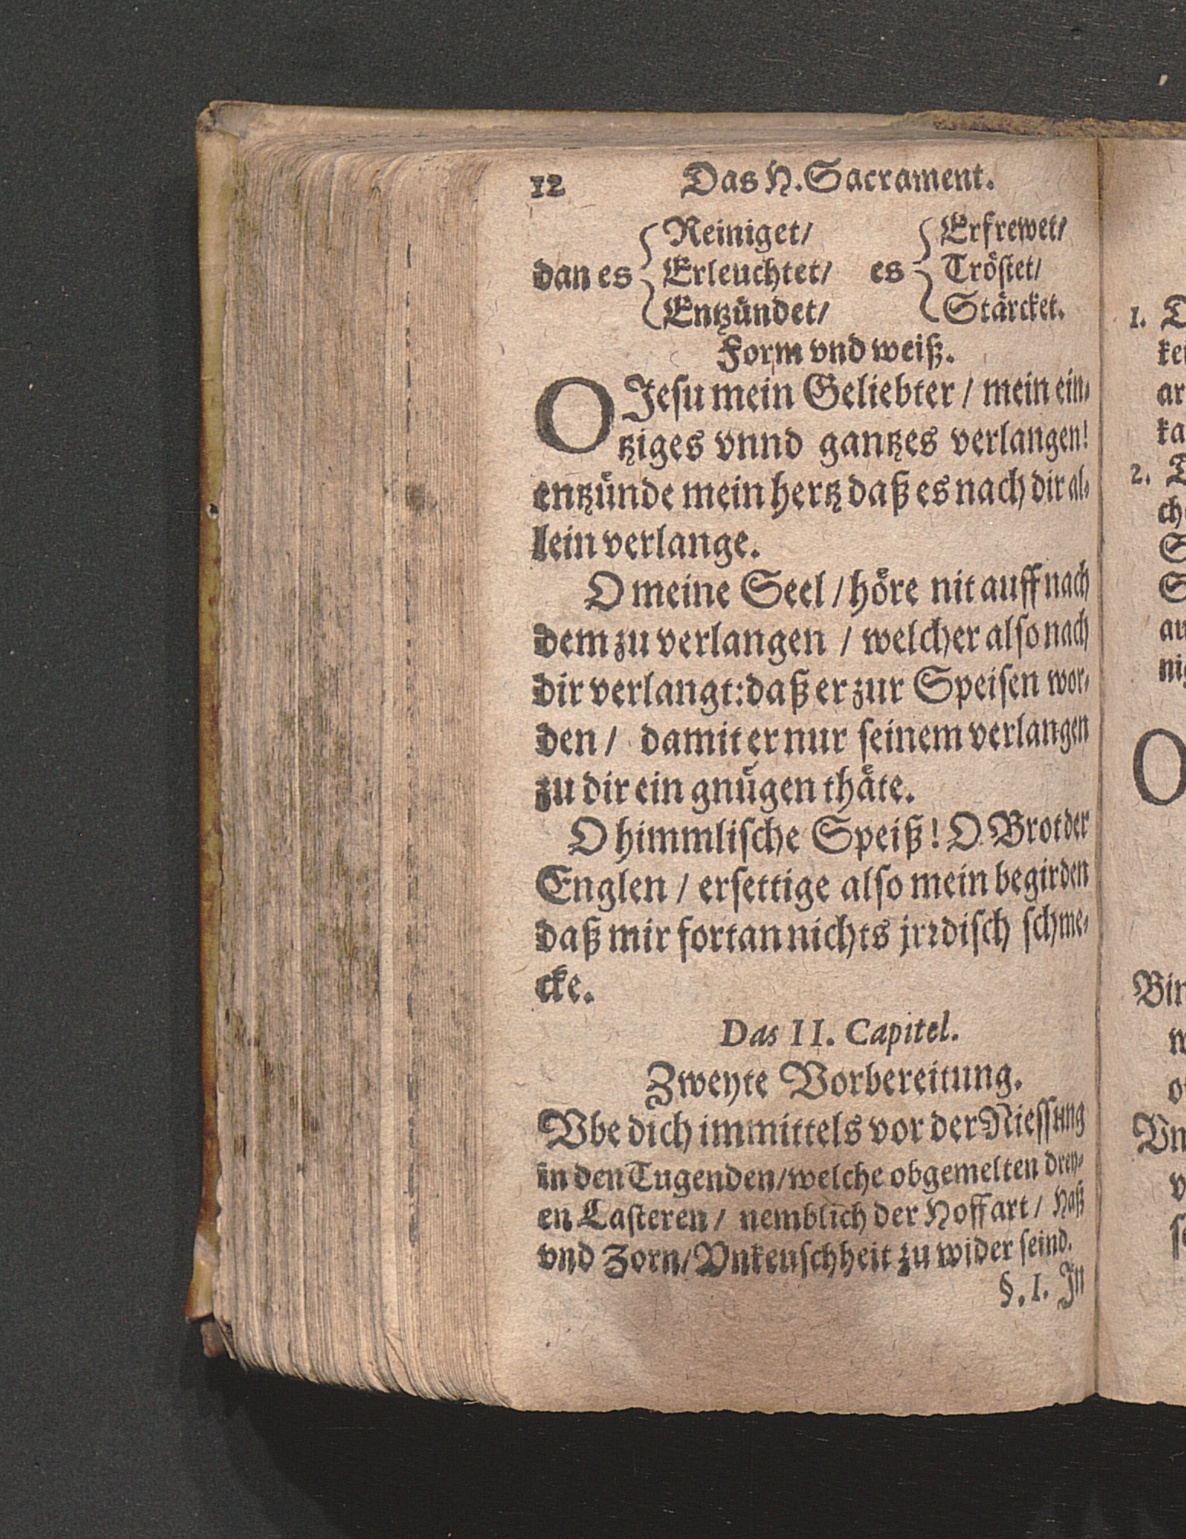 12 Das H. Sacrament.
Reiniget/ Erfrewet/
dan es Erleuchtet/ es Tröſtet/
Entzündet/ Stärcket.
Form vnd weiß.
O Jeſu mein Geliebter / mein ein⸗
tziges vnnd gantzes verlangen!
entzünde mein hertz daß es nach dir al⸗
lein verlange.
O meine Seel / höre nit auff nach
dem zu verlangen / welcher alſo nach
dir verlangt: daß er zur Speiſen wor⸗
den / damit er nur ſeinem verlangen
zu dir ein gnügen thäte.
O himmliſche Speiß! O Brot der
Englen / erſettige alſo mein begirden
daß mir fortan nichts jrꝛdiſch ſchme⸗
cke.
Das II. Capitel.
Zweyte Vorbereitung.
Vbe dich immittels vor der Nieſſung
in den Tugenden/ welche obgemelten drey⸗
en Laſteren / nemblich der Hoffart / Haß
vnd Zorn/ Vnkeuſchheit zu wider ſeind.
§. I. In
1. D
kei
ar
ka
2. D
ch
S
S
au
nig
O
Bin
w
Vn
v